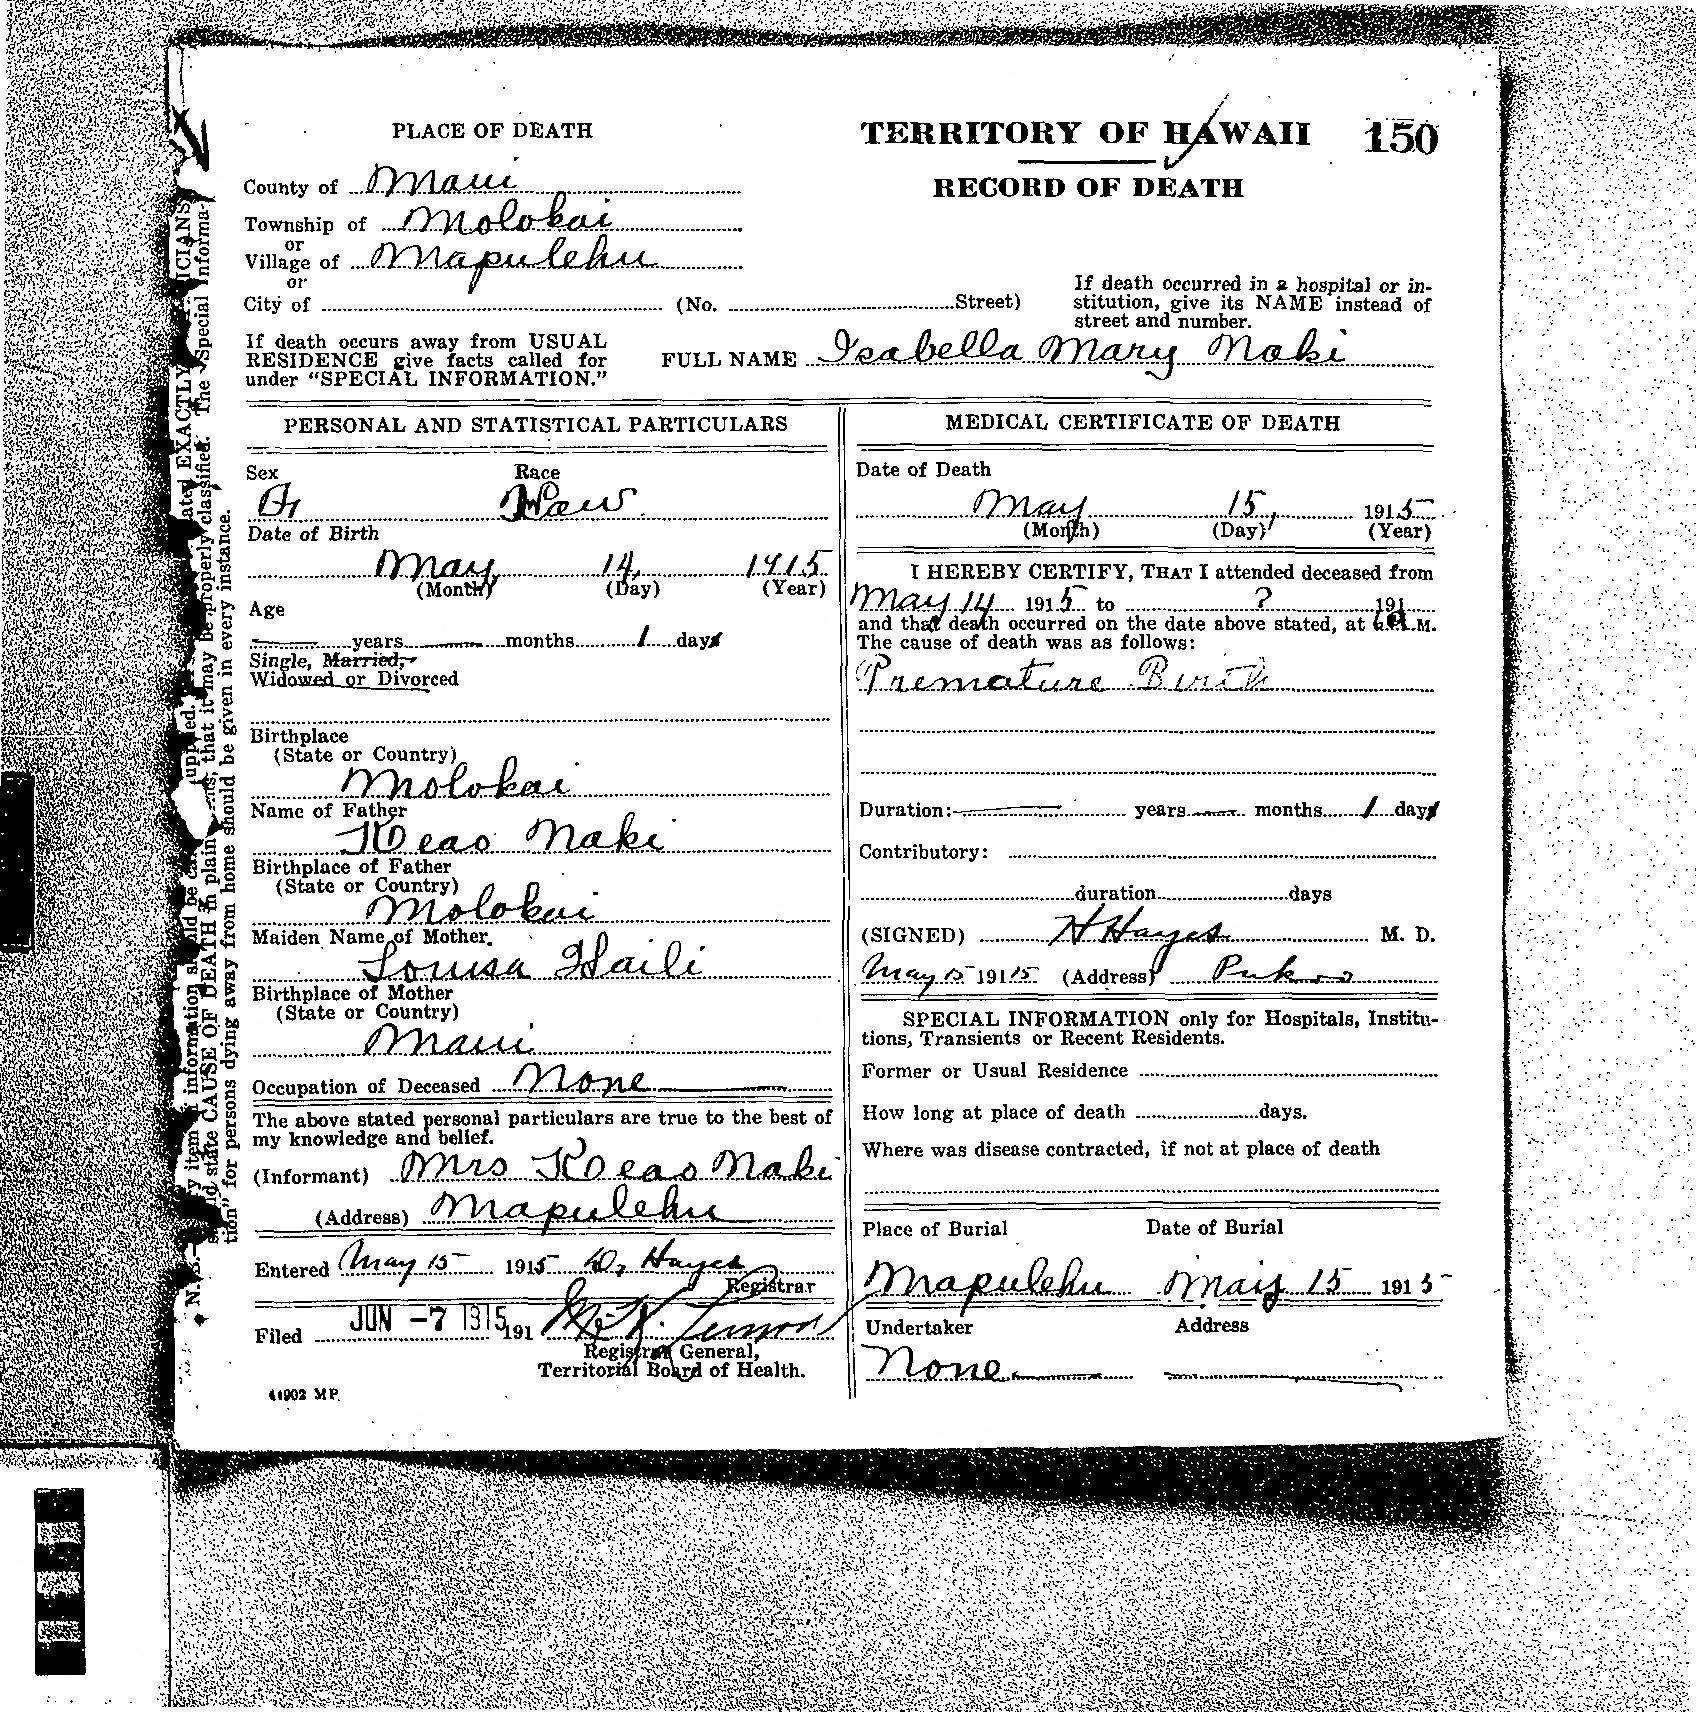 PLACE OF DEATH
County of Maui
Township of Molokai
or
Village of Mapulehu
or
City of (No. Street)
If death occurs away from USUAL
RESIDENCE give facts called for
under "SPECIAL INFORMATION."
TERRITORY OF HAWAII 150
RECORD OF DEATH
If death occurred in a hospital or in-
stitution, give its NAME instead of
street and number.
FULL NAME Isabella Mary Naki
PERSONAL AND STATISTICAL PARTICULARS
Sex Race
Haw
Date of Birth
May 14, 1915
(Month) (Day) (Year)
Age
years months 1 days
Single, Married,
Widowed or Divorced
Birthplace
(State or Country)
Molokai
Name of Father
Keao Naki
Birthplace of Father
(State or Country)
Molokai
Maiden Name of Mother.
Louisa Haili
Birthplace of Mother
(State or Country)
Maui
Occupation of Deceased None
The above stated personal particulars are true to the best of
my knowledge and belief.
(Informant) Mrs Keao Naki
(Address) Mapulehu
Entered May 15 1915 D, Hayes
Registrar
Filed JUN -7 1915 191
Registrar General,
Territorial Board of Health.
41902 MP
MEDICAL CERTIFICATE OF DEATH
Date of Death
May 15, 1915
(Month) (Day) (Year)
I HEREBY CERTIFY, THAT I attended deceased from
May 14 1915 to ? 191
and that death occurred on the date above stated, at M.
The cause of death was as follows:
Premature Birth
Duration: years months 1 days
Contributory:
duration days
(SIGNED) H Hayes M. D.
May 15 1915 (Address) Pukoo
SPECIAL INFORMATION only for Hospitals, Institu-
tions, Transients or Recent Residents.
Former or Usual Residence
How long at place of death days.
Where was disease contracted, if not at place of death
Place of Burial Date of Burial
Mapulehu May 15 1915
Undertaker Address
None
N. B. item information should be
state CAUSE OF DEATH in plain that it may be properly classified. The "Special Informa-
tion" for persons dying away from home should be given in every instance.